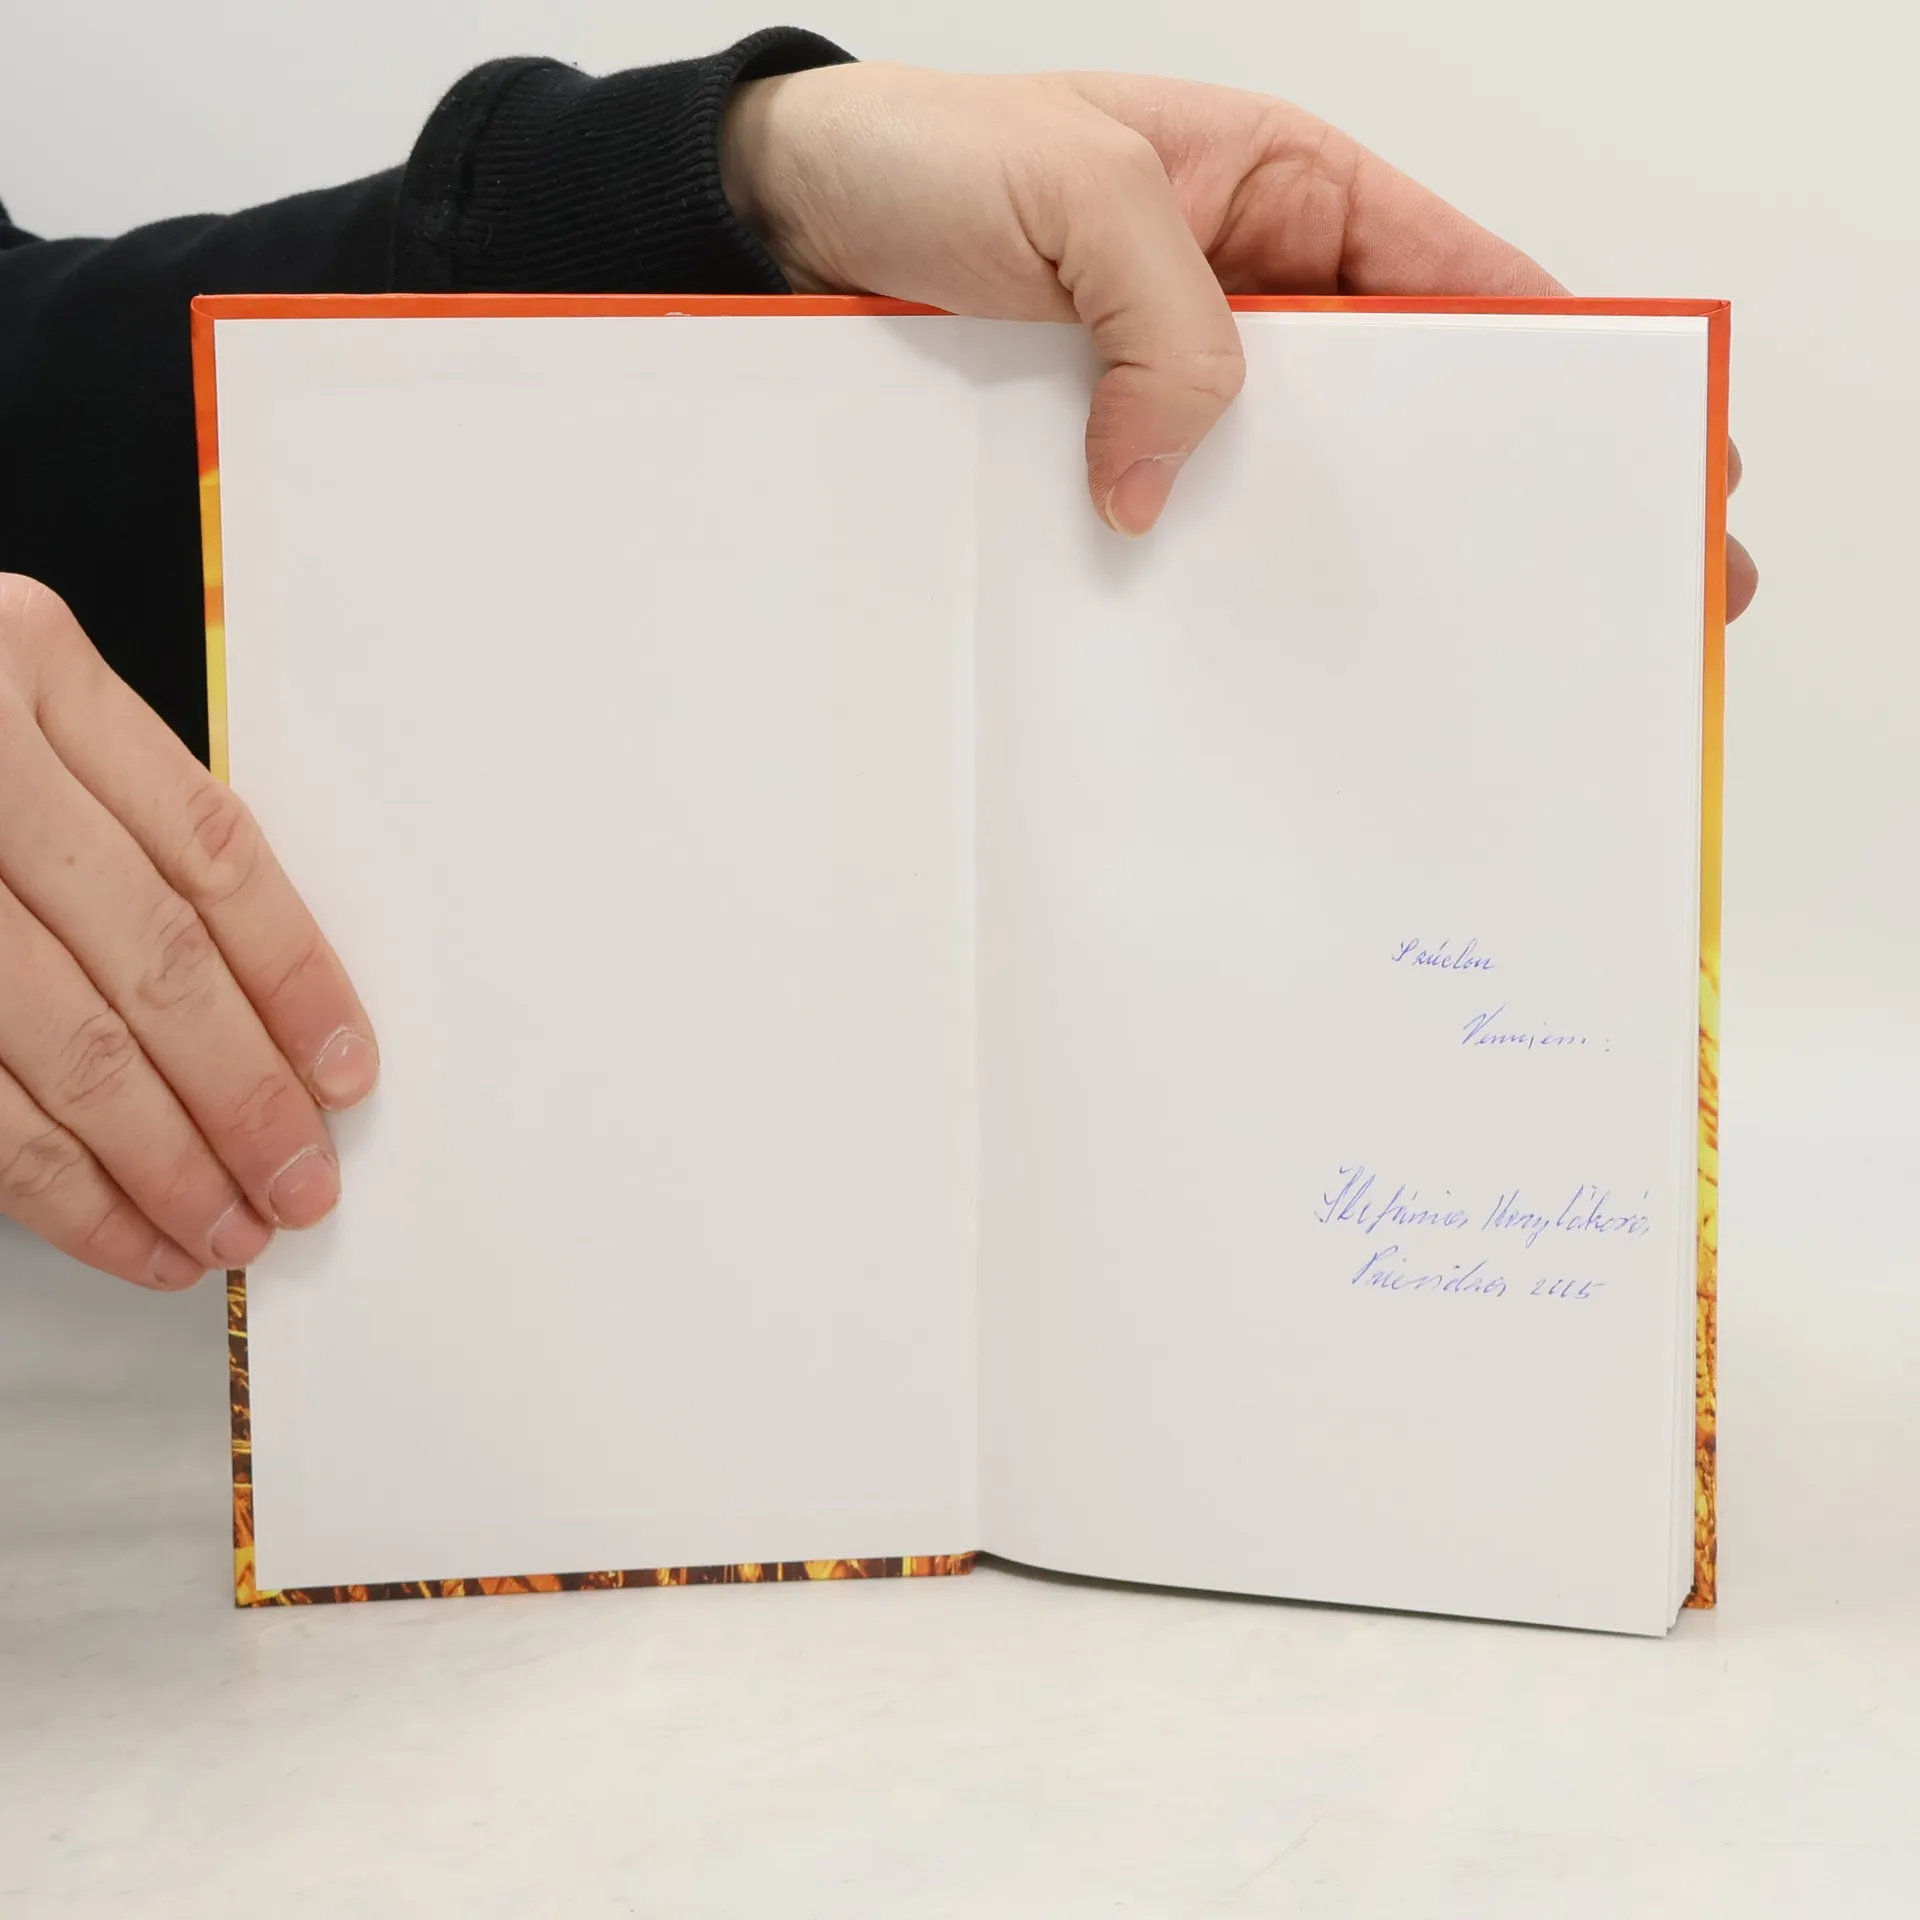 Srdcom
Venujem:
Štefánia Korytáková
Prievidza 2005